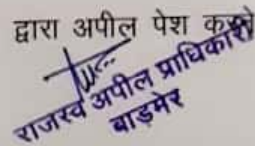 द्वारा अपील पेश करने
राजस्व अपील प्राधिकारी
बाड़मेर